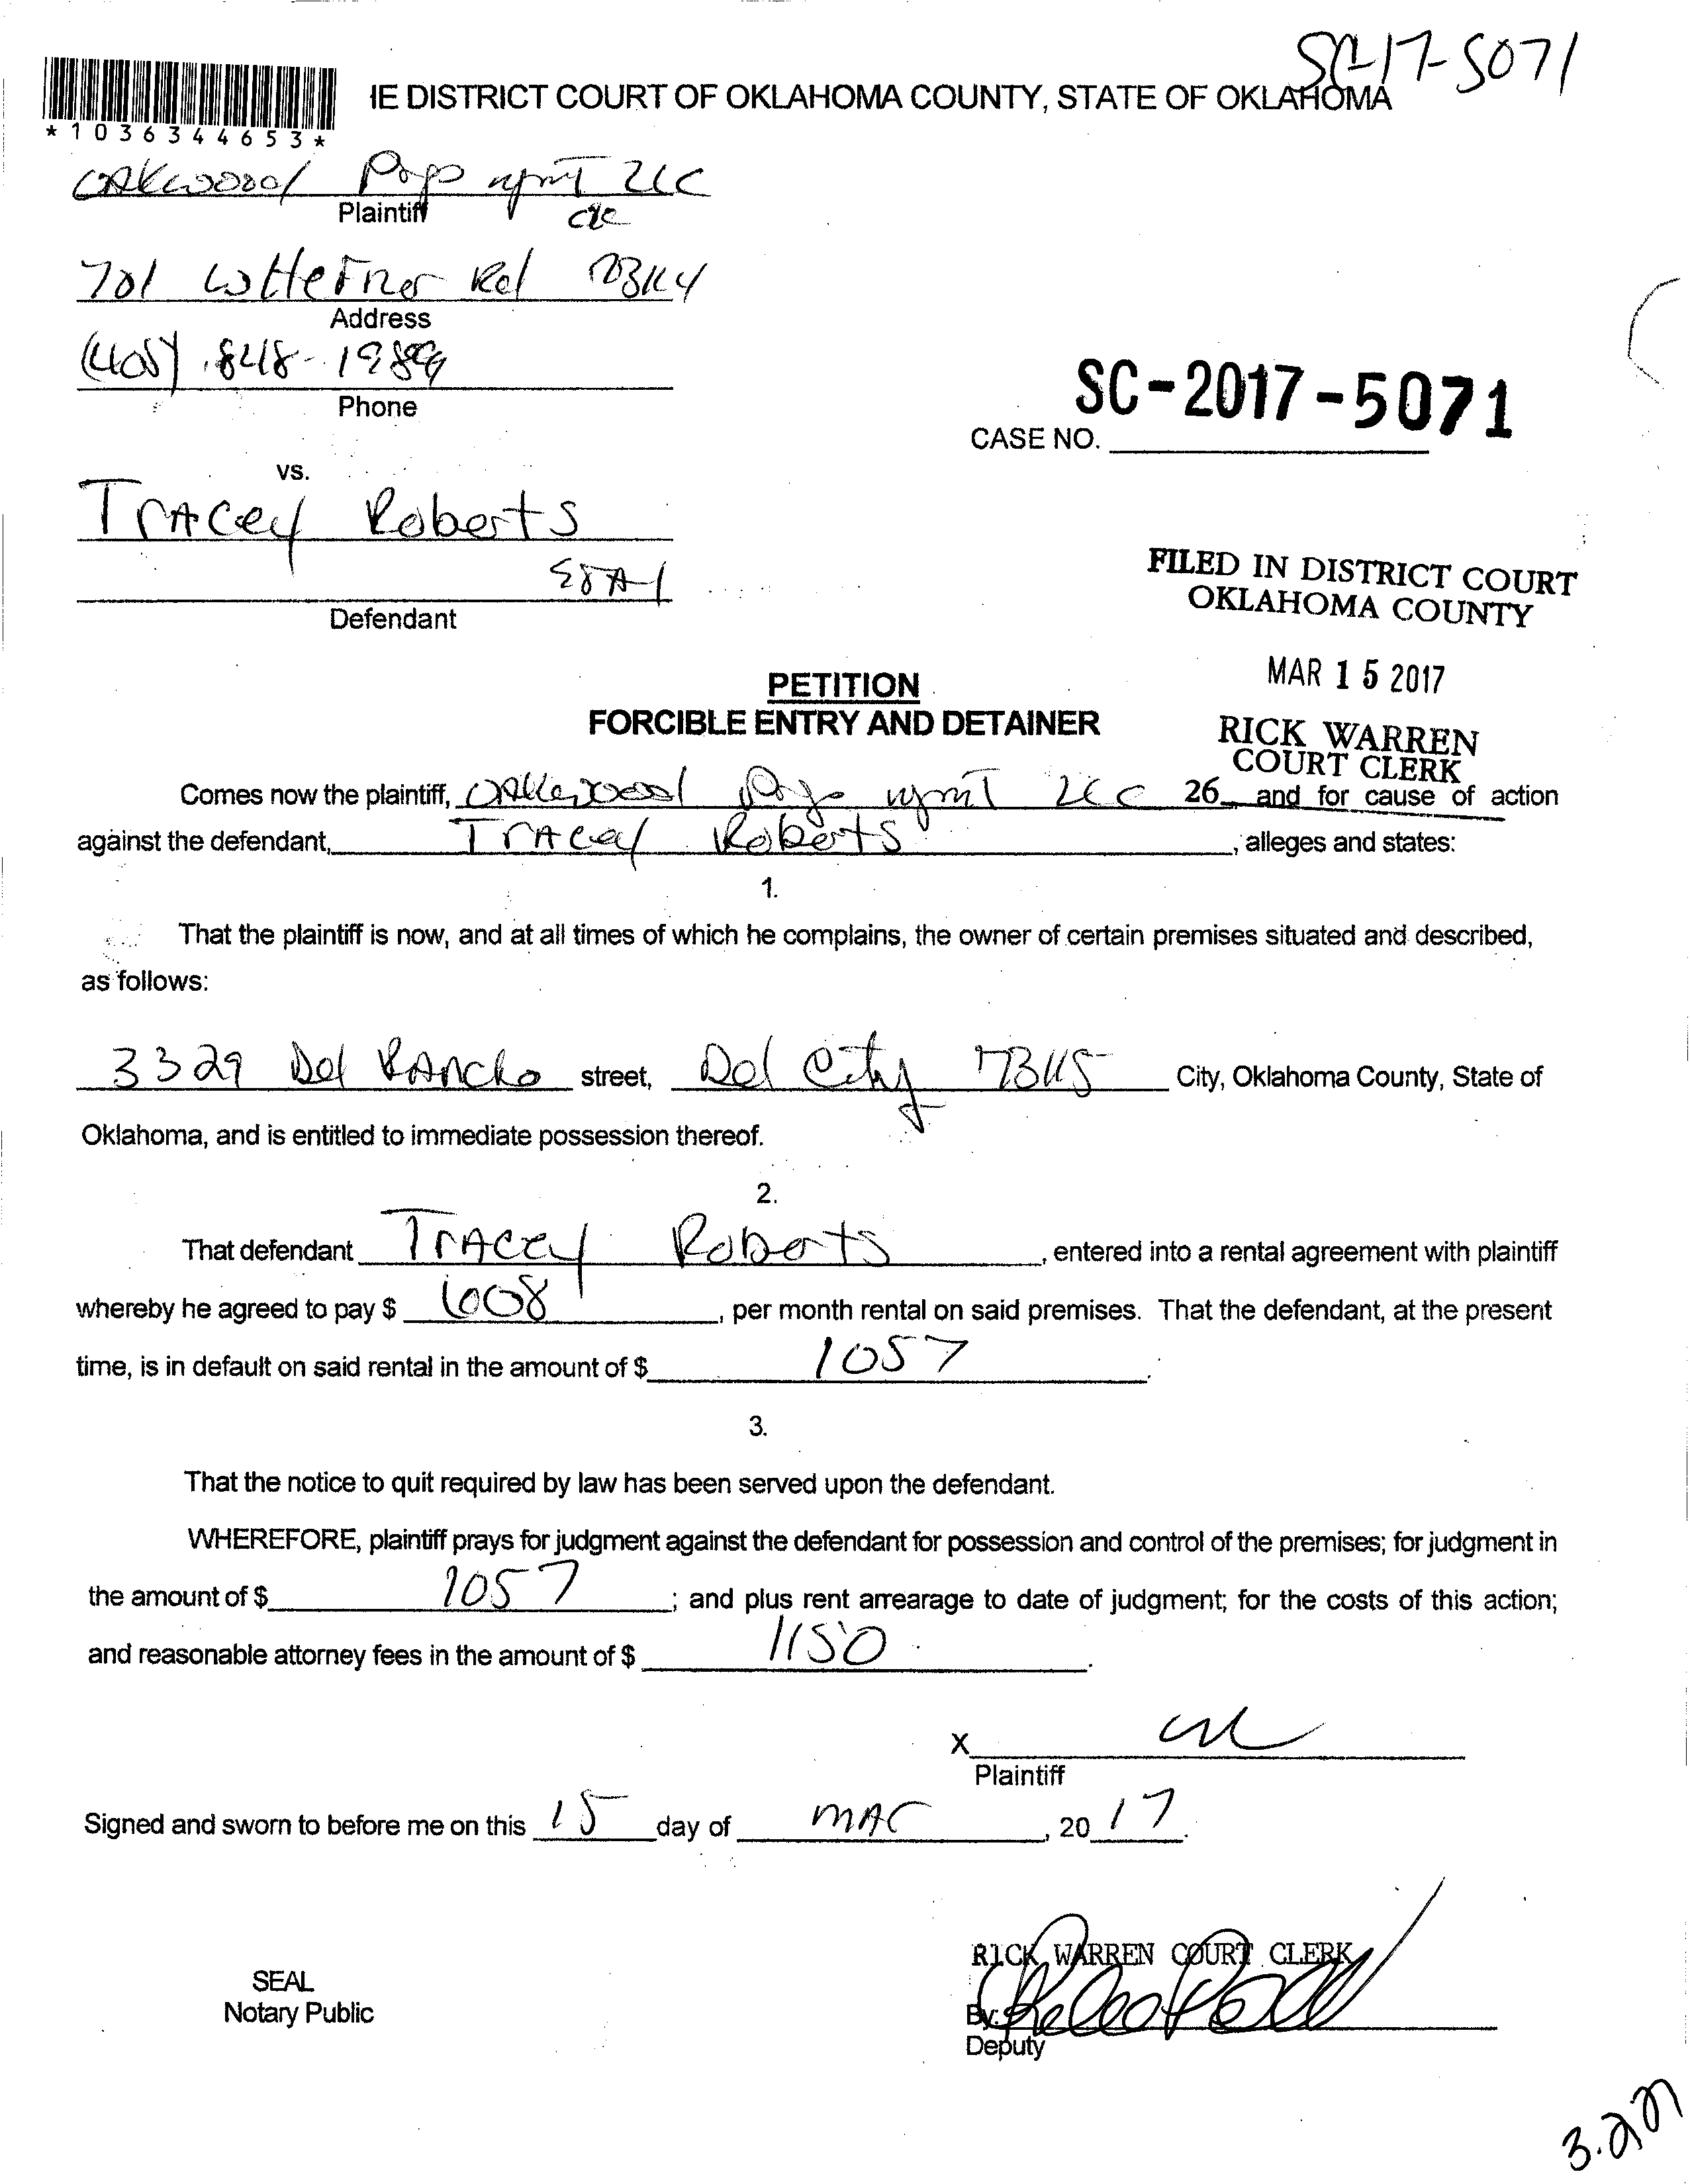 SC-17-5071
IE DISTRICT COURT OF OKLAHOMA COUNTY, STATE OF OKLAHOMA
*1036344653*
Oakwood Prop mgmT LLC
Plaintiff
701 Rd
Address
(405) 848-
Phone
SC-2017-5071
CASE NO.
vs.
Tracey Roberts
Defendant
FILED IN DISTRICT COURT
OKLAHOMA COUNTY
MAR 15 2017
RICK WARREN
COURT CLERK
PETITION
FORCIBLE ENTRY AND DETAINER
Comes now the plaintiff, Oakwood Prop mgmT LLC 26 and for cause of action
against the defendant, Tracey Roberts, alleges and states:
1.
That the plaintiff is now, and at all times of which he complains, the owner of certain premises situated and described,
as follows:
3329 Del Rancho street, Del City 73115 City, Oklahoma County, State of
Oklahoma, and is entitled to immediate possession thereof.
2.
That defendant Tracey Roberts, entered into a rental agreement with plaintiff
whereby he agreed to pay $ 608, per month rental on said premises. That the defendant, at the present
time, is in default on said rental in the amount of $ 1057.
3.
That the notice to quit required by law has been served upon the defendant.
WHEREFORE, plaintiff prays for judgment against the defendant for possession and control of the premises; for judgment in
the amount of $ 1057; and plus rent arrearage to date of judgment; for the costs of this action;
and reasonable attorney fees in the amount of $ 1150.
X
Plaintiff
Signed and sworn to before me on this 15 day of mar, 2017.
RICK WARREN COURT CLERK
SEAL
Notary Public
By:
Deputy